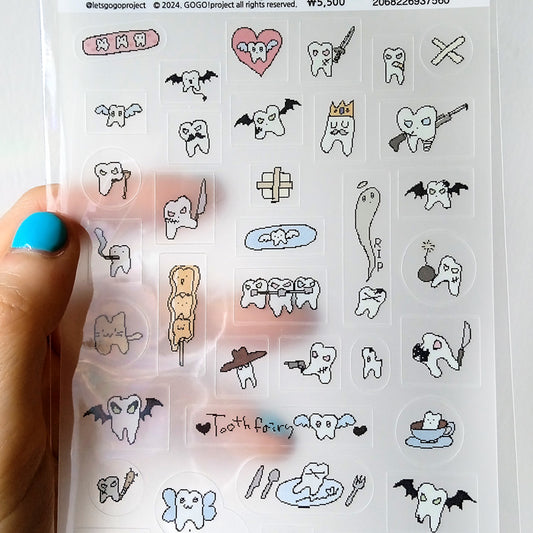 @letsgogoproject © 2024. GOGO!project all rights reserved. ₩5,500 2068226937560
RIP
Toothfairy